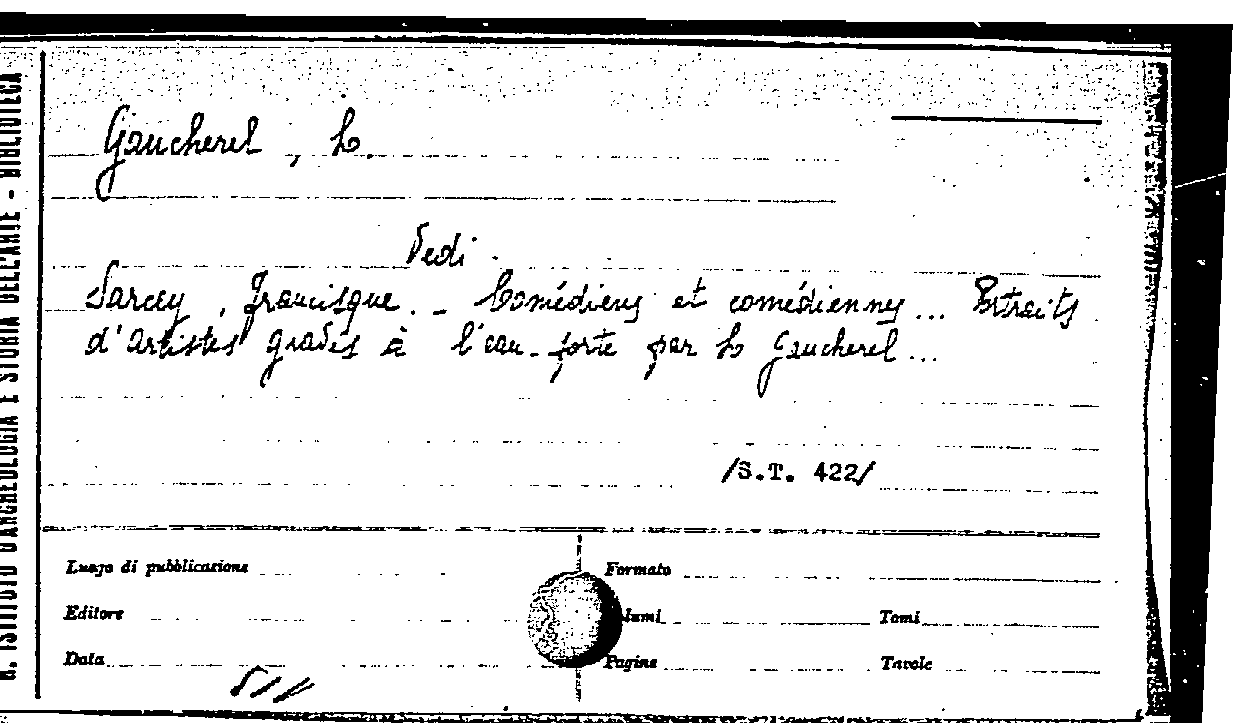 R. ISTITUTO D'ARCHEOLOGIA E STORIA DELL'ARTE - BIBLIOTECA
Gaucherel, L.
Vedi
Sarcey, Francisque. - Comédiens et comédiennes... Portraits
d'artistes gravés à l'eau-forte par L. Gaucherel...
/S.T. 422/
Luogo di pubblicazione
Formato
Editore
Volumi
Tomi
Data
Pagine
Tavole